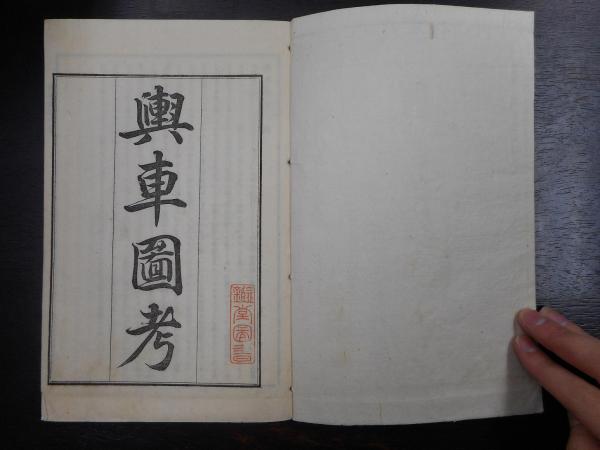 輿車圖考